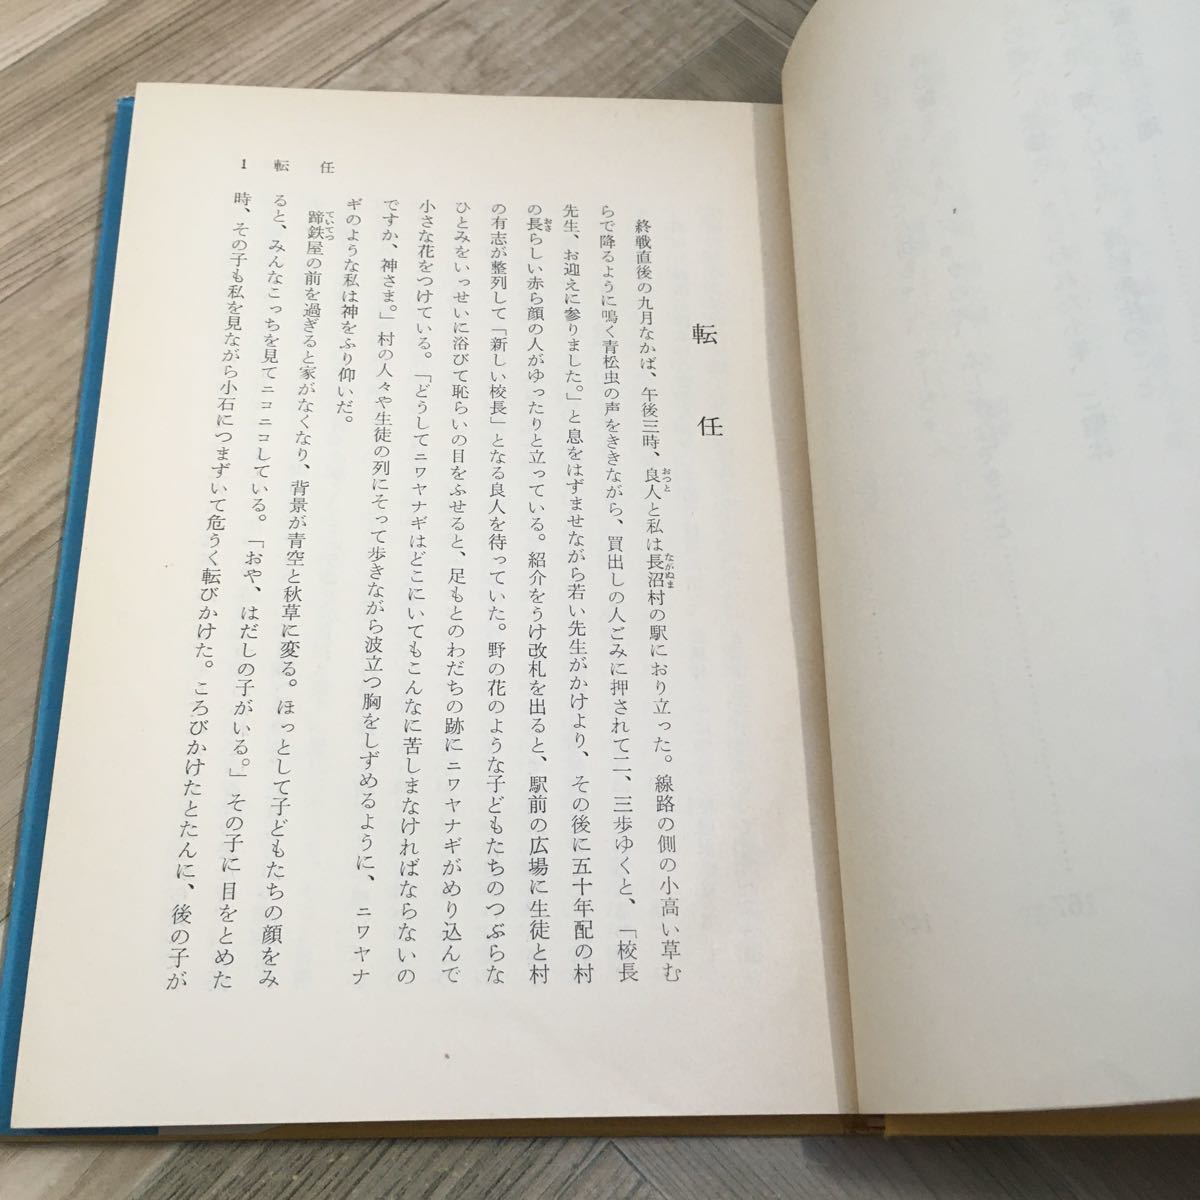 1 転任
転任
終戦直後の九月なかば、午後三時、良人と私は長沼村の駅におり立った。線路の側の小高い草む
らで降るように鳴く青松虫の声をききながら、買出しの人ごみに押されて二、三歩ゆくと、「校長
先生、お迎えに参りました。」と息をはずませながら若い先生がかけより、その後に五十年配の村
の長らしい赤ら顔の人がゆったりと立っている。紹介をうけ改札を出ると、駅前の広場に生徒と村
の有志が整列して「新しい校長」となる良人を待っていた。野の花のような子どもたちのつぶらな
ひとみをいっせいに浴びて恥らいの目をふせると、足もとのわだちの跡にニワヤナギがめり込んで
小さな花をつけている。「どうしてニワヤナギはどこにいてもこんなに苦しまなければならないの
ですか、神さま。」村の人々や生徒の列にそって歩きながら波立つ胸をしずめるように、ニワヤナ
ギのような私は神をふり仰いだ。
蹄鉄屋の前を過ぎると家がなくなり、背景が青空と秋草に変る。ほっとして子どもたちの顔をみ
ると、みんなこっちを見てニコニコしている。「おや、はだしの子がいる。」その子に目をとめた
時、その子も私を見ながら小石につまずいて危うく転びかけた。ころびかけたとたんに、後の子が
おっと
たがぬま
おさ
ていてつ
167